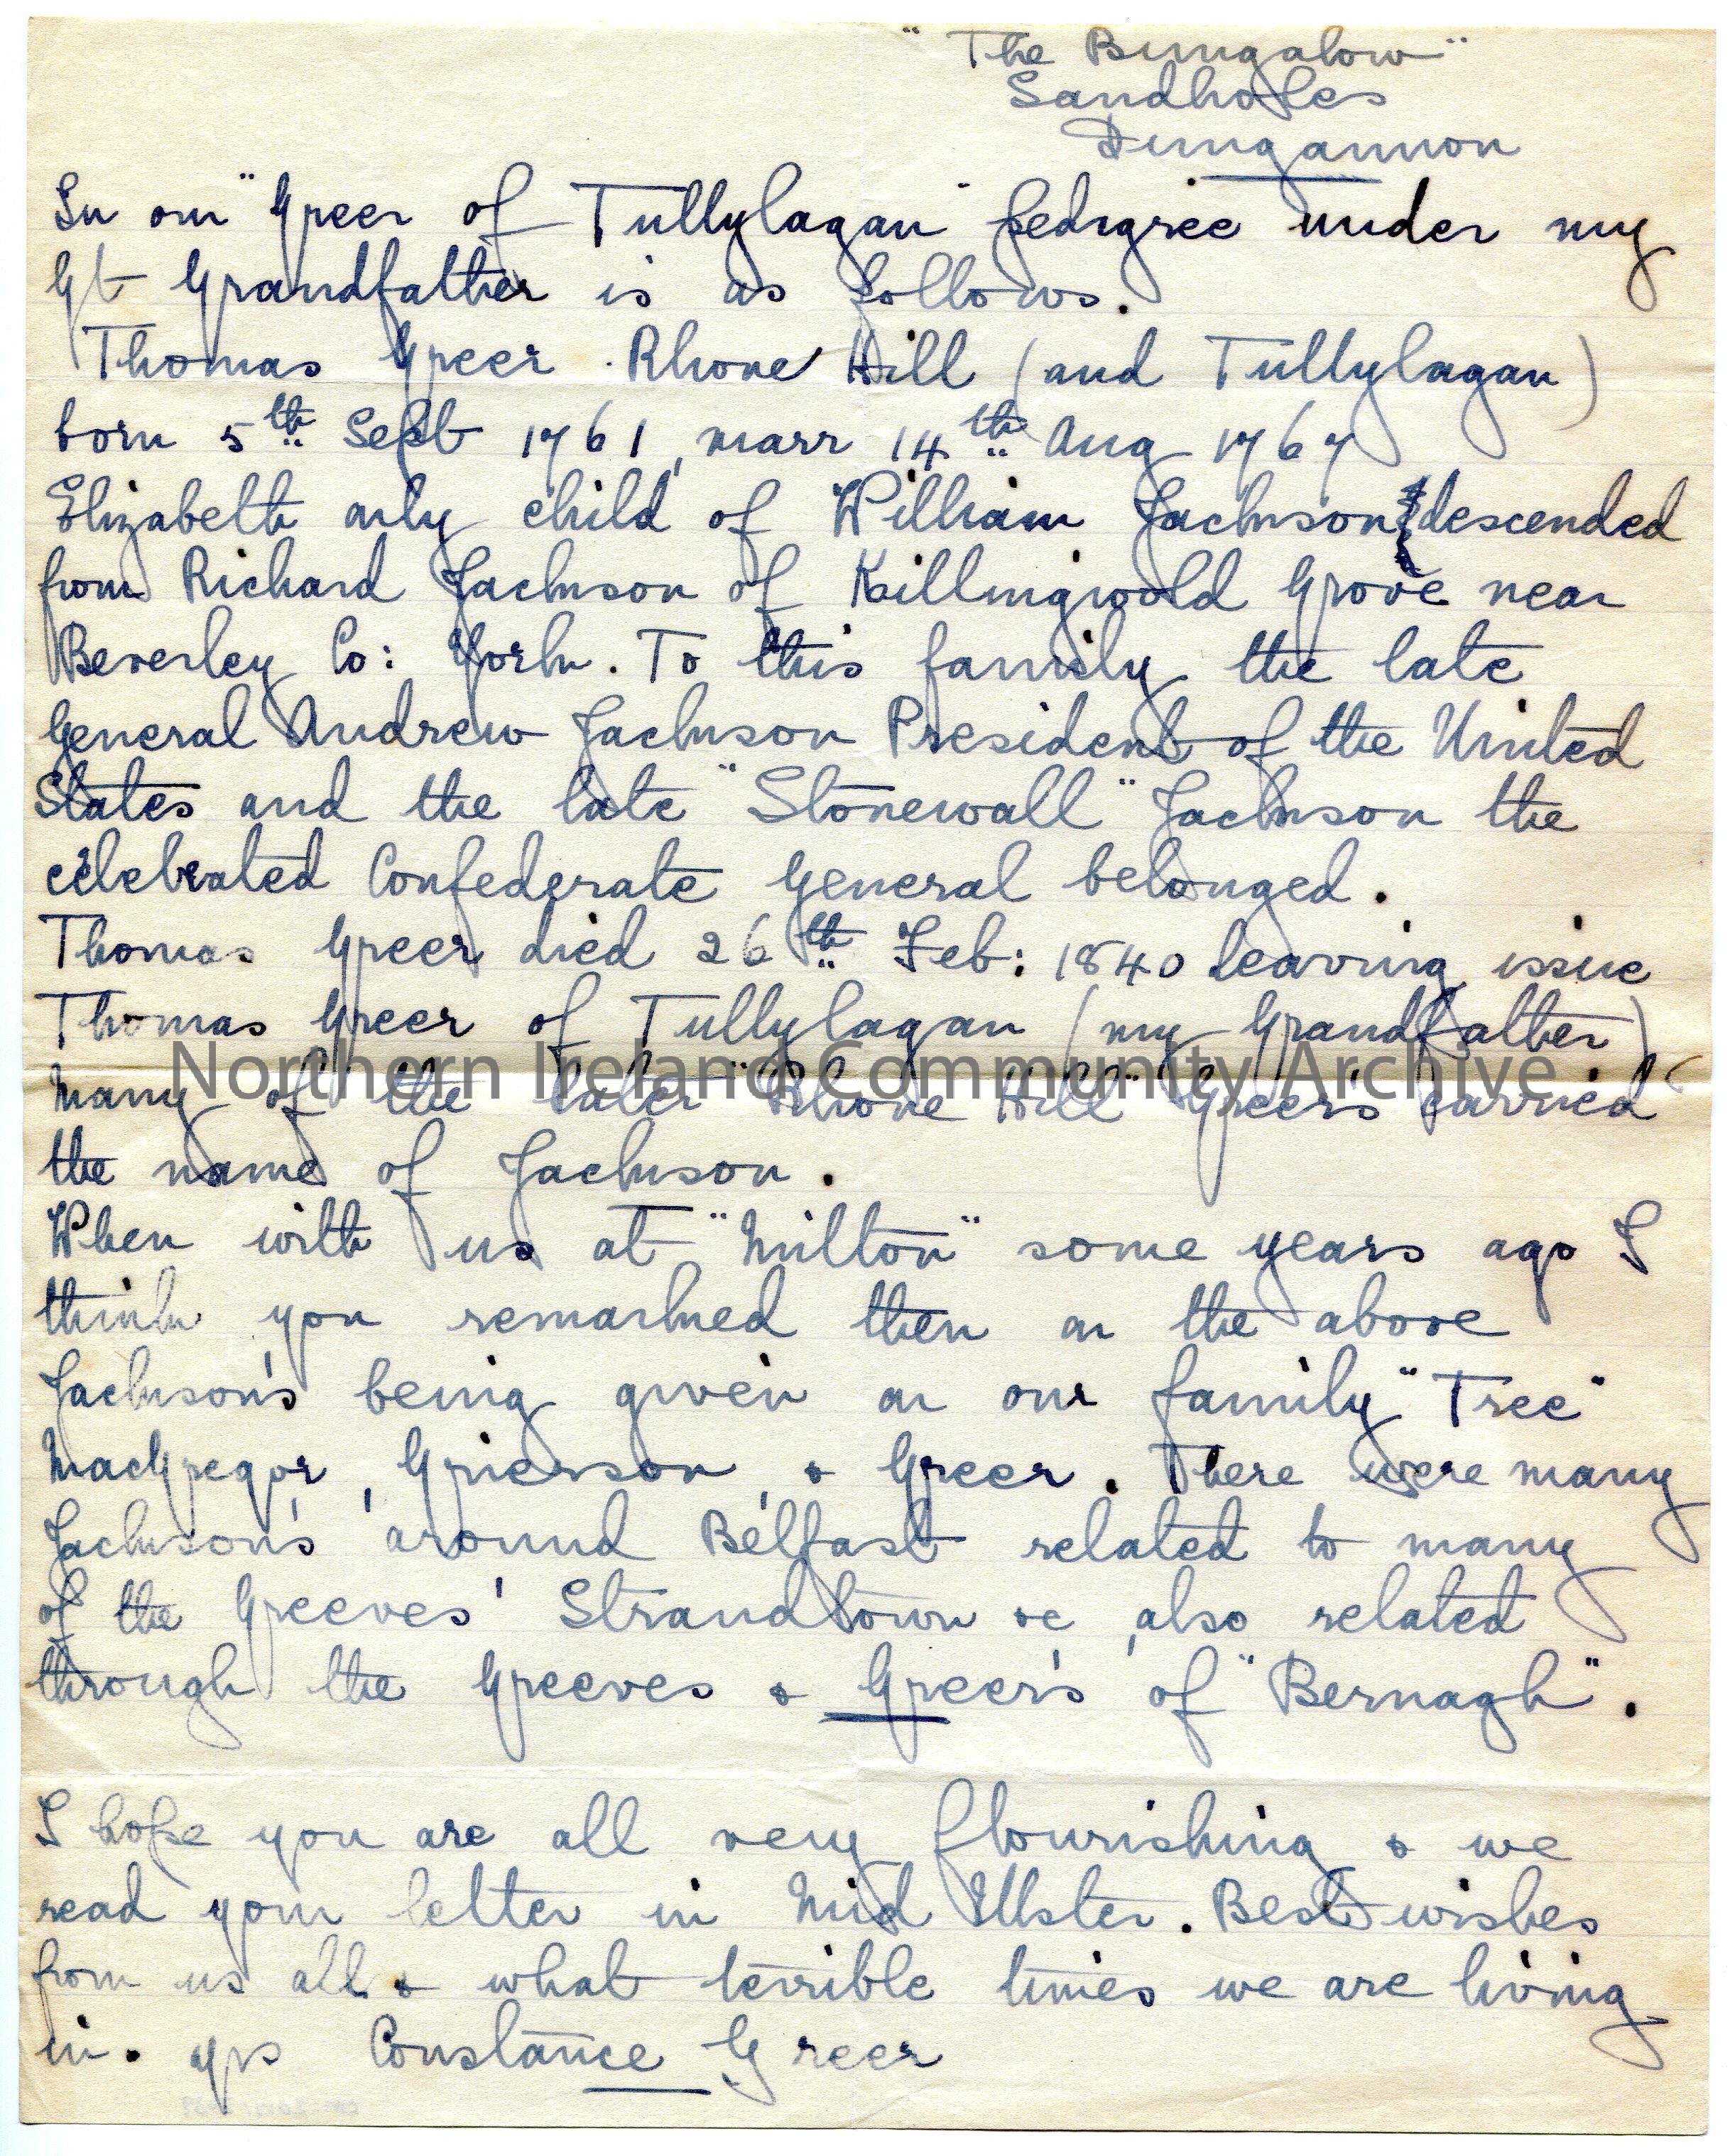 "The Bungalow"
Sandholes
Dungannon
In our "Greer of Tullylagan" pedigree under my
Gt Grandfather is as follows.
Thomas Greer. Rhone Hill (and Tullylagan)
born 5th Sept 1761, marr 14th Aug 1767
Elizabeth only child of William Jackson descended
from Richard Jackson of Killingwold Grove near
Beverley Co: York. To this family the late
General Andrew Jackson President of the United
States and the late "Stonewall" Jackson the
celebrated Confederate General belonged.
Thomas Greer died 26th Feb: 1840 leaving issue
Thomas Greer of Tullylagan (my Grandfather)
Northern Ireland Community Archive
Many of the later "Rhone Hill" Greer's carried
the name of Jackson.
When with us at "Milton" some years ago I
think you remarked then on the above
Jackson's being given on our family "Tree"
MacGregor, Grierson, & Greer. There were many
Jackson's around Belfast related to many
of the Greeves' Strandtown &c, also related
through the Greeves & Greer's of "Bernagh".
I hope you are all very flourishing & we
read your letter in Mid Ulster. Best wishes
from us all & what terrible times we are living
in. yrs Constance Greer